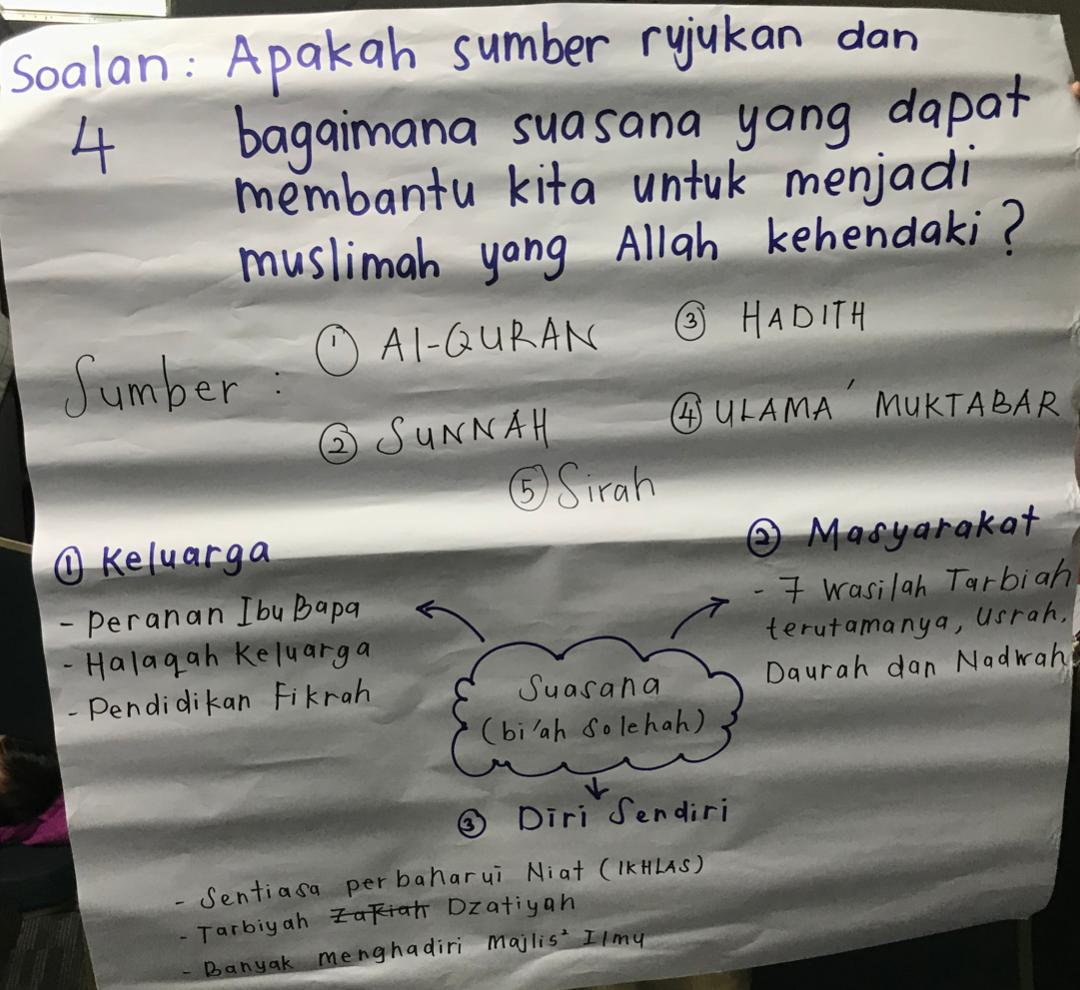 Soalan: Apakah sumber rujukan dan
4 bagaimana suasana yang dapat
membantu kita untuk menjadi
muslimah yang Allah kehendaki?
Sumber: ① Al-QURAN ③ HADITH
② SUNNAH ④ ULAMA' MUKTABAR
⑤ Sirah
① Keluarga
- Peranan Ibu Bapa
- Halaqah Keluarga
- Pendidikan Fikrah
② Masyarakat
- 7 Wasilah Tarbiah
terutamanya, Usrah,
Daurah dan Nadwah
Suasana
(bi'ah solehah)
③ Diri Sendiri
- Sentiasa perbaharui Niat (IKHLAS)
- Tarbiyah Zakiah Dzatiyah
- Banyak menghadiri Majlis² Ilmu